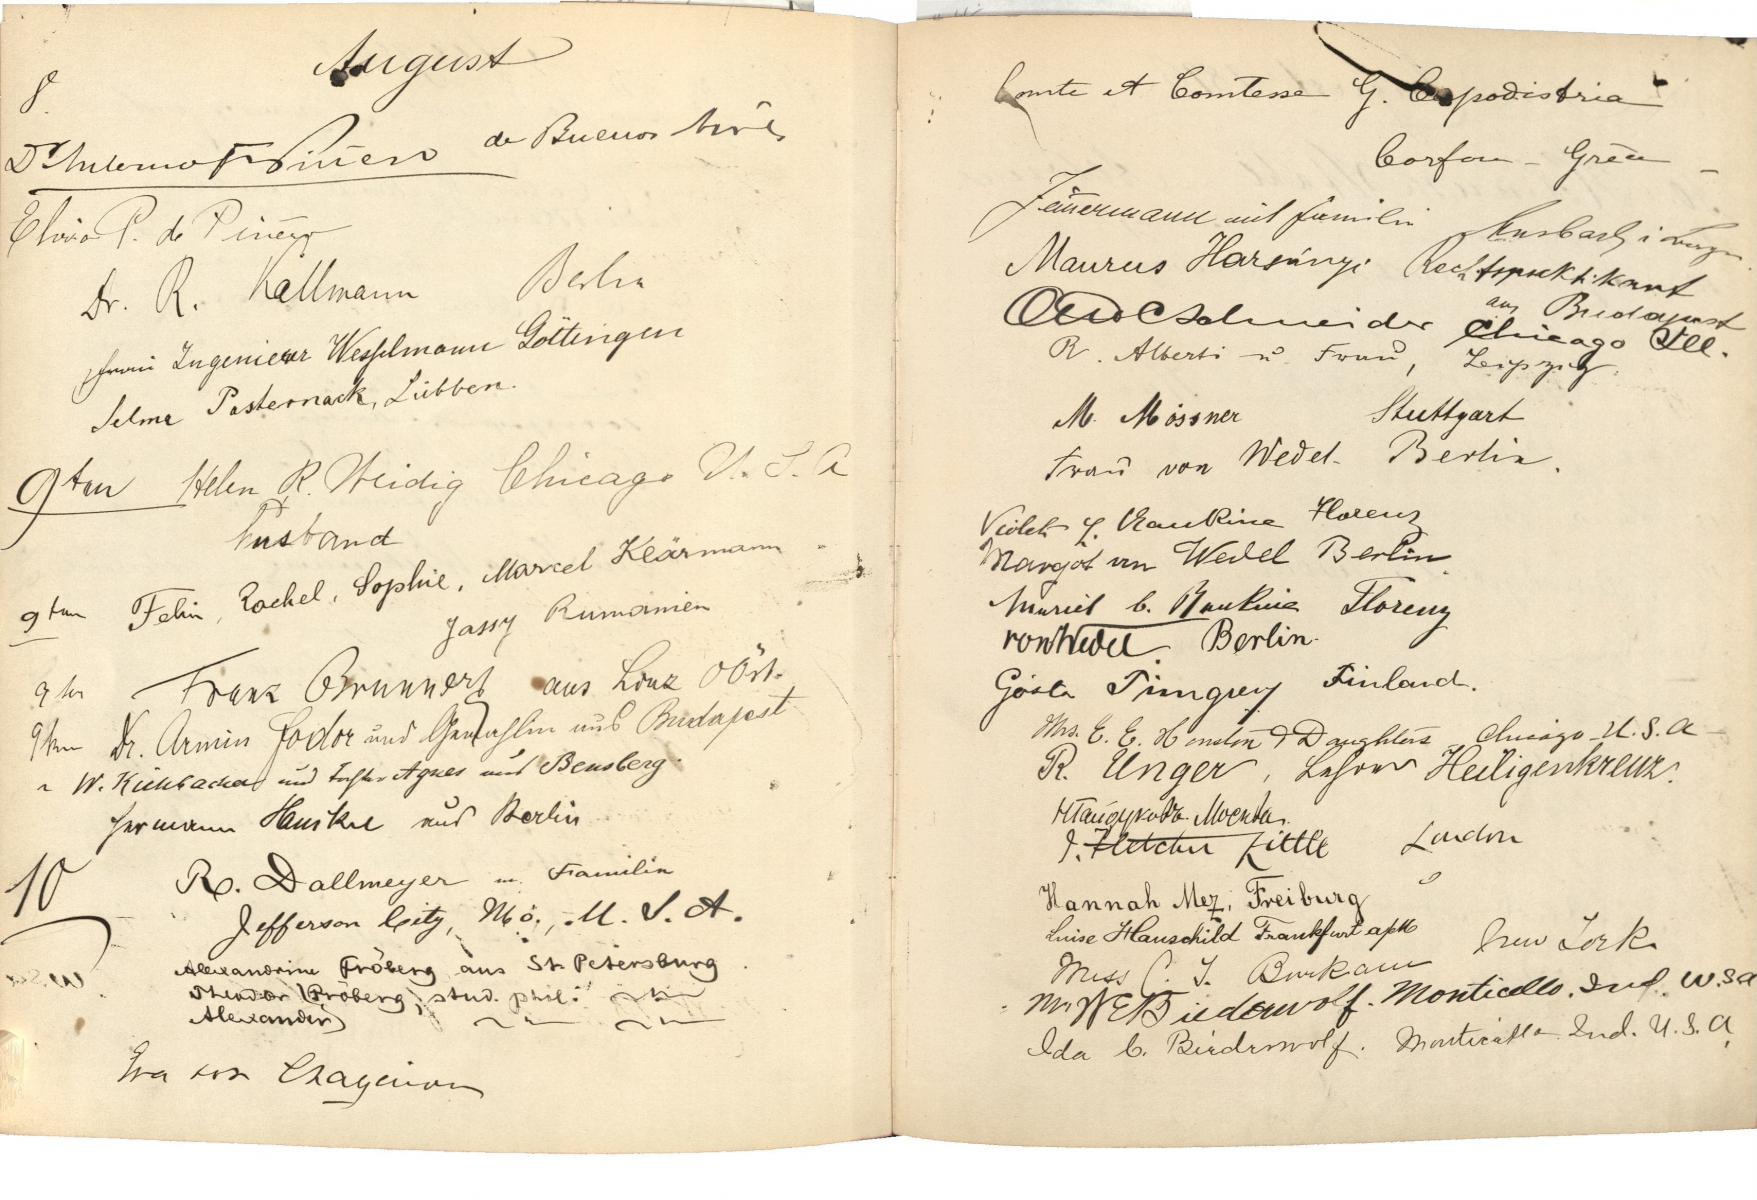 August
8.
Dr Antonio F. Piñero de Buenos Aires
Elvira P. de Piñero
Dr. R. Kallmann Berlin
Frau Ingenieur Wesselmann Göttingen
Selma Pasternack, Lübben.
9ten Helen R. Weidig Chicago U. S. A
Husband
9ten Felix, Rachel, Sophie, Marcel Klärmann
Jassy Rumänien
9ten Franz Brunner aus Linz OÖst.
9ten Dr. Armin Fodor und Gemahlin aus Budapest
" W. und Tochter Agnes aus Bensberg.
Hermann aus Berlin
10 R. Dallmeyer u. Familie
Jefferson City, Mo., U. S. A.
Alexandrine Fröberg aus St. Petersburg
Theodor Fröberg, stud. phil.
Alexander
Eva von
Comte et Comtesse G. Capodistria
Corfou - Grèce -
mit Familie Ansbach i
Maurus Harsányi Rechtspraktikant
aus Budapest
Schneider Chicago Ill.
R. Alberti u. Frau, Leipzig.
M. Mössner Stuttgart
Frau von Wedel. Berlin.
Violet Rankine Florenz
Margot von Wedel Berlin
Muriel C. Rankine Florenz
von Wedel Berlin.
Gösta Timgren Finland.
Mrs. E. E. & Daughters Chicago - U. S. A -
R. Unger, Heiligenkreuz.
Москва.
J. Fletcher Little London
Hannah Mez, Freiburg
Luise Hauschild Frankfurt a/M
Miss C. J. New York
Mr W E Biederwolf. Monticello. Ind. U.S.A
Ida C. Biederwolf. Monticello Ind. U. S. A